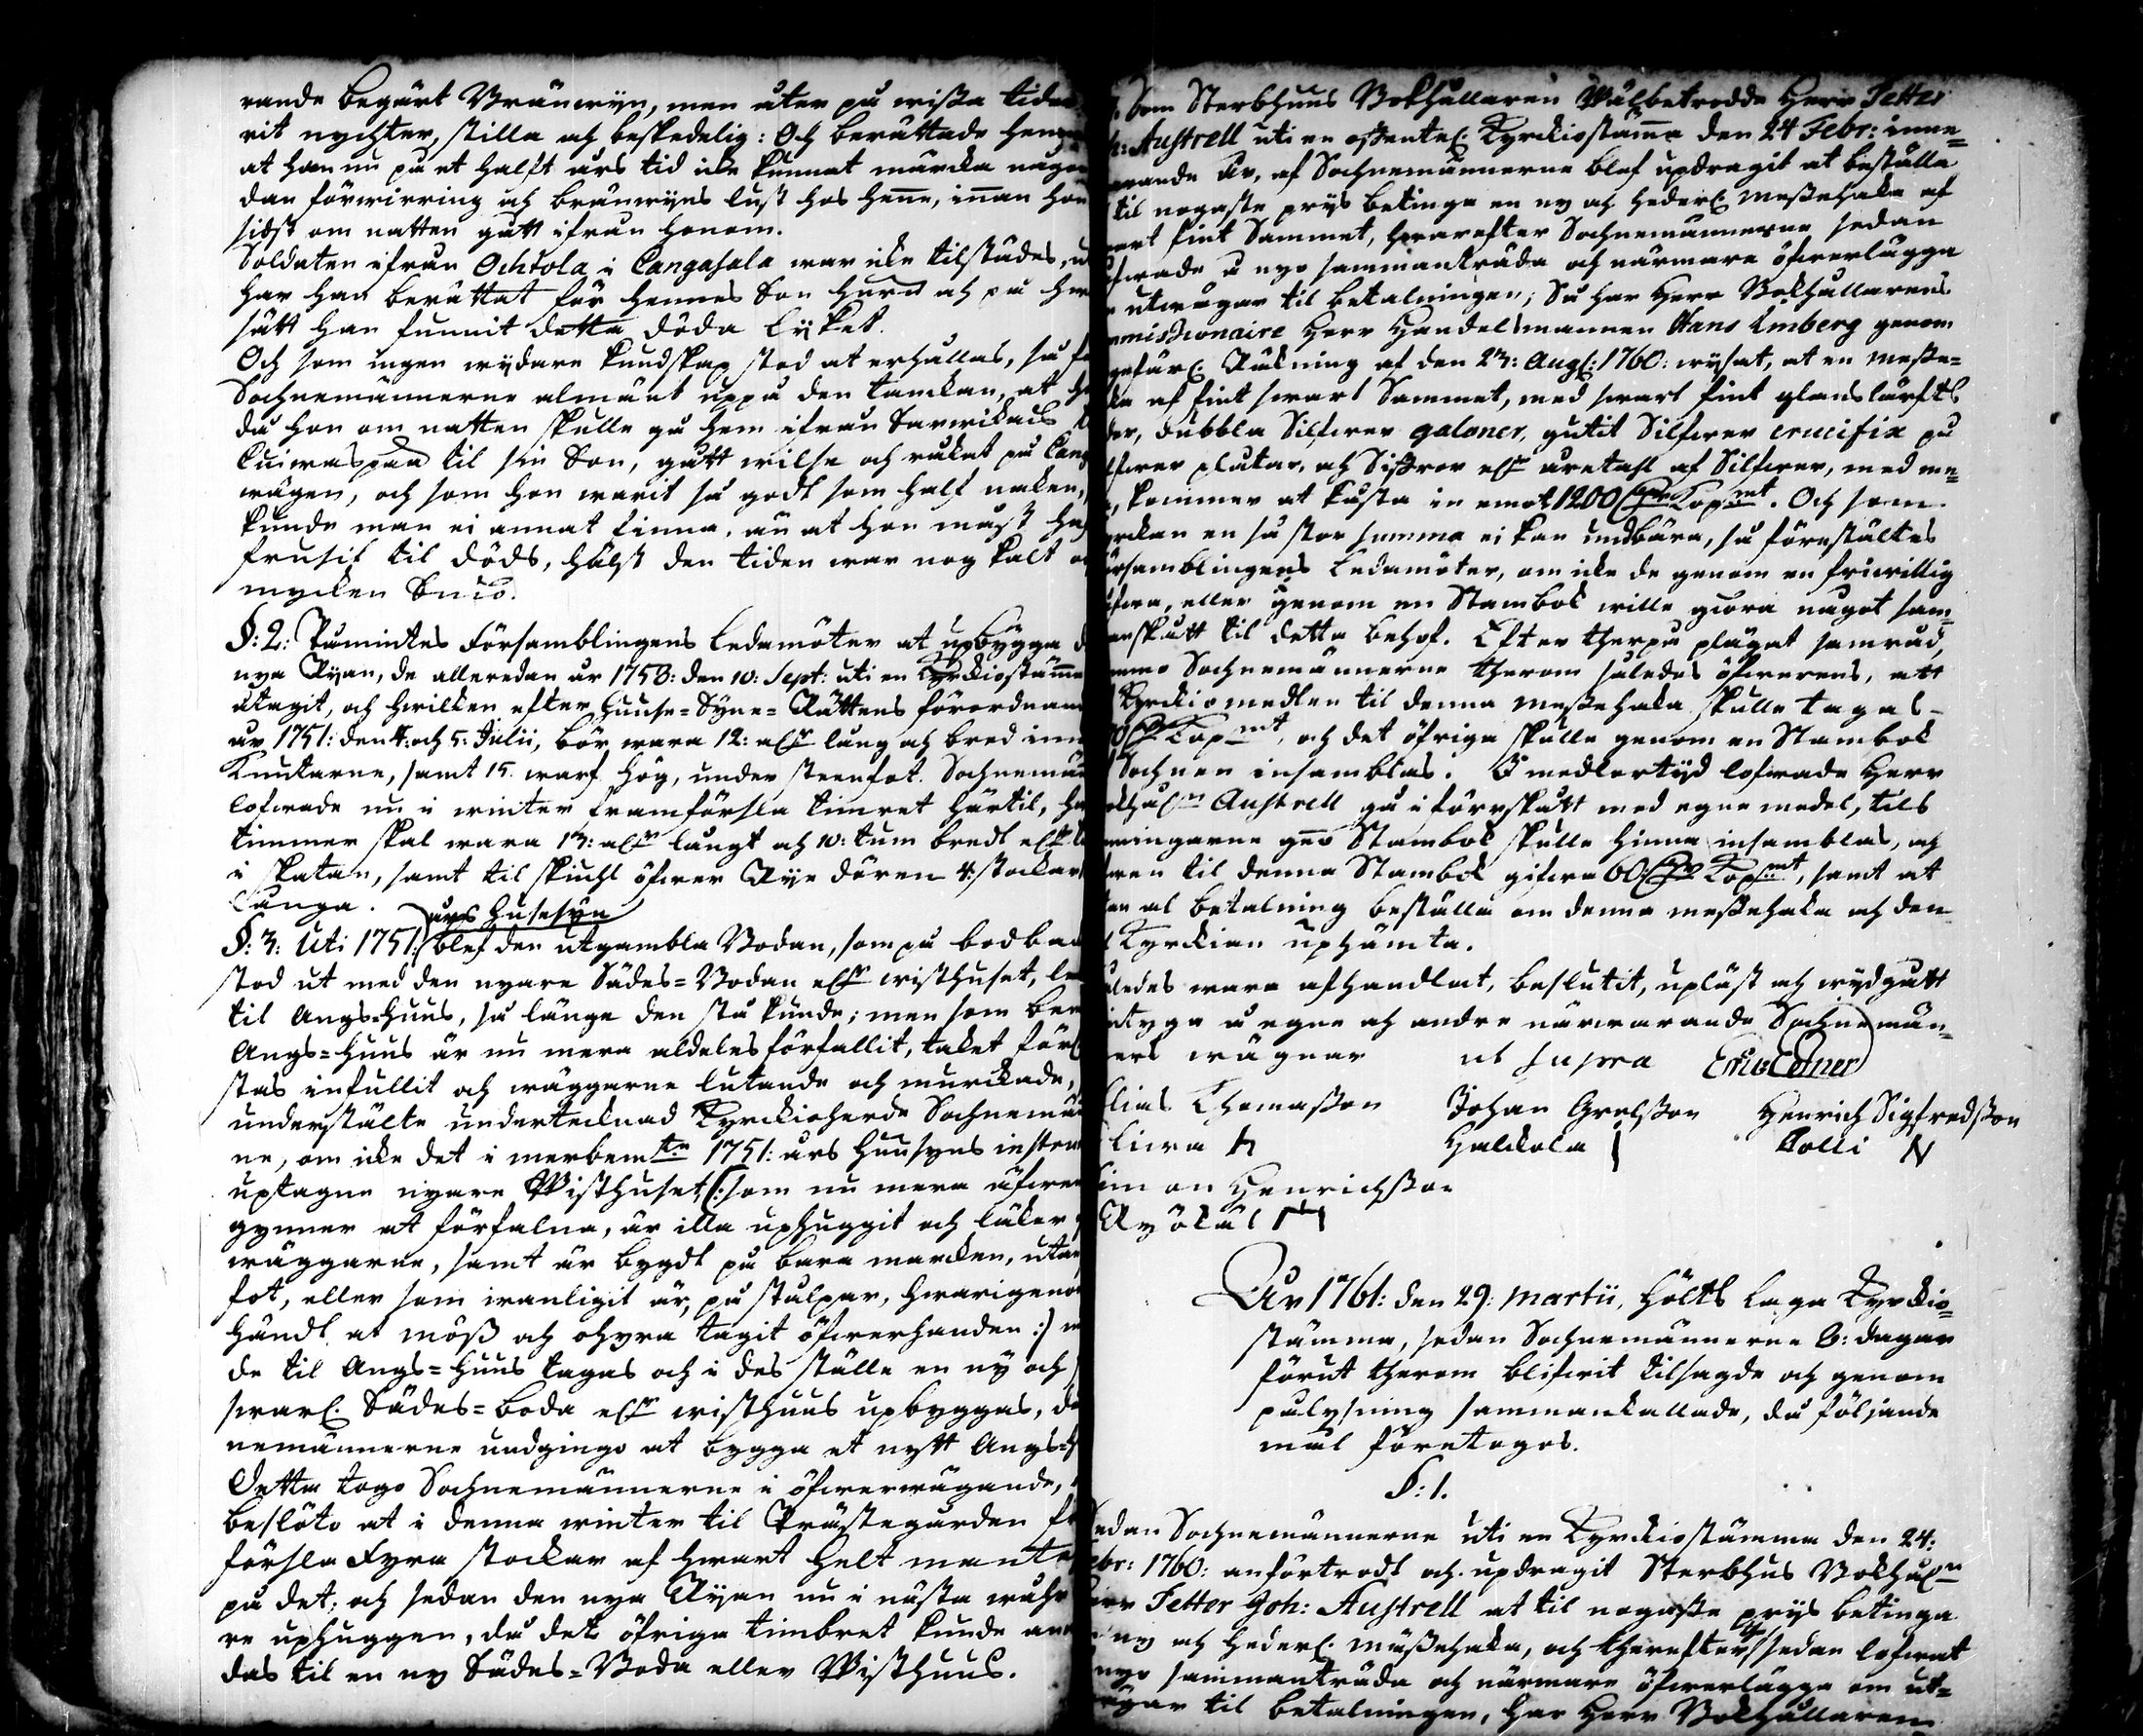 rande begärt Bränwijn, men altee på wissa tider
rit nychter, stilla och beskedelig: Och berättade
at han nu på et halft års tid icke kunnat märcka någon
dan förwirring och bränwijns lust hos henne, innan hon
sidst om natten gått ifrån honom.
Soldaten ifrån Ochtola i Cangasala war icke tilstädes,
har han berättat för hennes Son huru och på
sätt han funnit detta döda lijket.
Och som ingen wijdare kundskap stod at erhållas, så
Sochnemännerne almänt uppå den tanckan, at
då hon om natten skulle gå hem ifrån Sarwikais
Luiwaspää til sin Son, gått wilse och råkat på
wägen, och som hon warit så godt som half naken,
kunde man ei annat finna, än at hon måst
frusit til döds, hälst den tiden war nog kalt
mycken Snö.
§: 2: Påmintes Församblingens Ledamöter at upbygga
nya Ryan, de alleredan år 1758: den 10: Sept: uti en Kyrckiostämma
åtagit, och hwilken efter Huuse-Syne-Rättens förordnande
år 1751: den 4. och 5: Julii, bör wara 12: alnr lång och bred
Knutarne, samt 15. warf hög, under steenfot. Sochnemän
lofwade nu i winter framförsla timret härtil,
timmer skal wara 13: alnr långt och 10: tum bredt
i skatan, samt til skiuhl öfwer Rye dören 4: stockar
Långa.
års Husesyn
§: 3: Uti 1751: blef den utgambla Bodan, som på bodbacken
stod ut med den nyare Sädes-Bodan ellr wisthuset,
til Ångs-Huus, så länge den stå kunde; men som
Ångs-Huus är nu mera aldeles förfallit, taket
stas infallit och wäggarne lutande och murcknade,
understälte undertecknad Kyrckioherde Sochnemän
ne, om icke det i merbemte 1751: års Huusyns
uptagne nyare Wisthuset, (: som nu mera äfwen
gynner at förfalna, är illa uphuggit och läker
wäggarne, samt är bygdt på bara marcken, utan
fot, eller som wanligit är, på stålpar, hwarigenom
händt at möss och ohyra tagit öfwerhanden :)
de til Ångs-Huus tagas och i des ställe en ny och
swarl. Sädes-boda ellr wisthuus upbyggas, då
nemännerne undgingo at bygga et nytt Ångs-
Detta togo Sochnemännerne i öfwerwägande,
beslöto at i denna winter til Prästegården
försla Fyra stockar af hwart helt mantal
på det, och sedan den nya Ryan nu i nästa
re uphuggen, då det öfriga timbret kunde
das til en ny Sädes-Boda eller Wisthuus.
Som Sterbhuus Bokhållaren Wälbetrodde Herr Petter
Austrell uti en offentel. Kyrckiostämma den 24 Febr: inne-
warande år, af Sochnemännerne blef updragit at beställa
til nogaste prijs betinga en ny och hederl. Messehaka af
swart fint Sammet, hwarefter Sochnemännerne sedan
lofwade å nyo sammanträda och närmare öfwerlägga
utwägar til betalningen; Så har Herr Bokhållarens
Commissionaire Herr Handelsmannen Hans Limberg genom
Räkning af den 23: Aug: 1760: wijsat, at en messe-
haka af fint swart Sammet, med swart fint glans lärfts
foder, dubbla Silfwer galoner, gutit Silfwer crucifix på
Silfwer plåtar, och Siffror ellr åretahl af Silfwer, med me-
ra, kommer at kåsta in emot 1200 Dlr Kopmt. Och som
Kyrckan en så stor summa ei kan undbära, så förestältes
Församblingens Ledamöter, om icke de genom en friwillig
gifwa, eller genom en Stambok wille giöra något sam-
manskått til detta behof. Efter therpå plägat samråd,
kommo Sochnemännerne therom således öfwerens, att
Kyrckiomedlen til denna messehaka skulle tagas
Dlr Kopmt, och det öfriga skulle genom en Stambok
Sochnen insamblas. I medlertijd lofwade Herr
Bokhåln Austrell gå i förskått med egne medel, tils
penningarne gno Stambok skulle hinna insamblas, och
til denna Stambok gifwa 60: Dlr Kopmt, samt at
utan al betalning beställa om denna messehaka och den
Kyrckian uphämta.
Således wara afhandlat, beslutit, upläst och wijdgått
intyga å egne och andre närwarande Sochnemän-
ners wägnar ut supra Eric Edner
Elias Thomasson Johan Grelsson Henrich Sigfredsson
Liwa Haldola Rolli
Simon Henrichsson
Ryökäs
År 1761: den 29: Martii, hölts laga Kyrckio-
stämma, sedan Sochnemännerne 8: dagar
förut therom blifwit tilsagde och genom
pålysning sammankallade, då följande
mål företogos.
§: 1.
Sedan Sochnemännerne uti en Kyrckiostämma den 24:
Febr: 1760: anförtrodt och updragit Sterbhus Bokhåln
Herr Petter Joh: Austrell at til nogaste prijs betinga
en ny och hederl. mässehaka, och therefter sedan lofwat
å nyo sammanträda och närmare öfwerlägga om ut-
wägar til betalningen, har Herr Bokhållaren